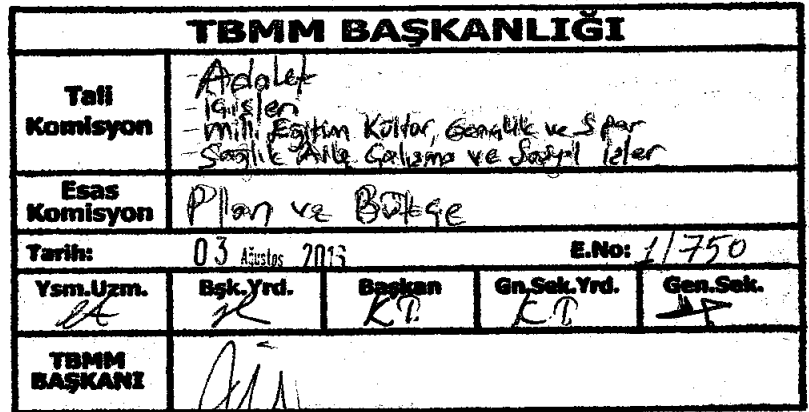 TBMM BAŞKANLIĞI
Tali Komisyon
- Adalet
- İçişleri
- Milli Eğitim Kültür, Gençlik ve Spor
- Sağlık Aile Çalışma ve Sosyal İşler
Esas Komisyon
Plan ve Bütçe
Tarih: 03 Ağustos 2016 E.No: 1/750
Ysm.Uzm. Bşk.Yrd. Başkan Gn.Sek.Yrd. Gen.Sek.
TBMM BAŞKANI